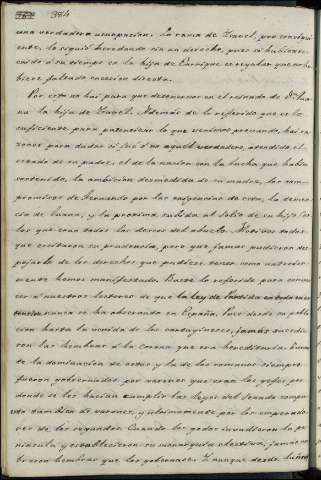 384
una verdadera usurpacion. La rama de Isavel, por consigui
ente, lo siguió heredando sin un derecho, pues si hubiera
á su tiempo en la hija de Enrrique es regular que no hu
biese faltado sucesion directa.
Por esto no hai para que detenernos en el reinado de Dª Jua
na la hija de Isavel. Además de lo referido que es lo
suficiente para patentizar lo que venimos provando, hai ra
zones para dudar si fué ó no aquel verdadero, atendido el
de su padre, el de la nacion con la lucha que había
sostenido, la ambicion desmedida de su madre, los com
promisos de Fernando por las exigencias de esta, la demen
cia de Juana, y la procsima subida al Solio de su hijo Car
los que eran todos los deseos del abuelo. Motivos todos
que escitaron su prudencia, pero que jamas pudieron des
pojarle de los derechos que pudiese tener como anterior
mente hemos manifestado. Baste lo referido para conven
cer á nuestros lectores de que la ley de Partida
nunca se ha observado en España, pues desde su pobla
cion hasta la venida de los cartagineses, jamás sucedie
ron las hembras á la corona que era hereditaria, duran
te la dominacion de estos y la de los romanos siempre
fueron gobernados por varones que eran los gefes por
donde se les hacían cumplir las leyes del Senado compu
esto tambien de varones, y ultimamente por los emperado
res de los segundos. Cuando los godos invadieron la pe
nínsula y establecieron su monarquía electiva, jamás su
bieron hembras que los gobernasen. Y aunque desde